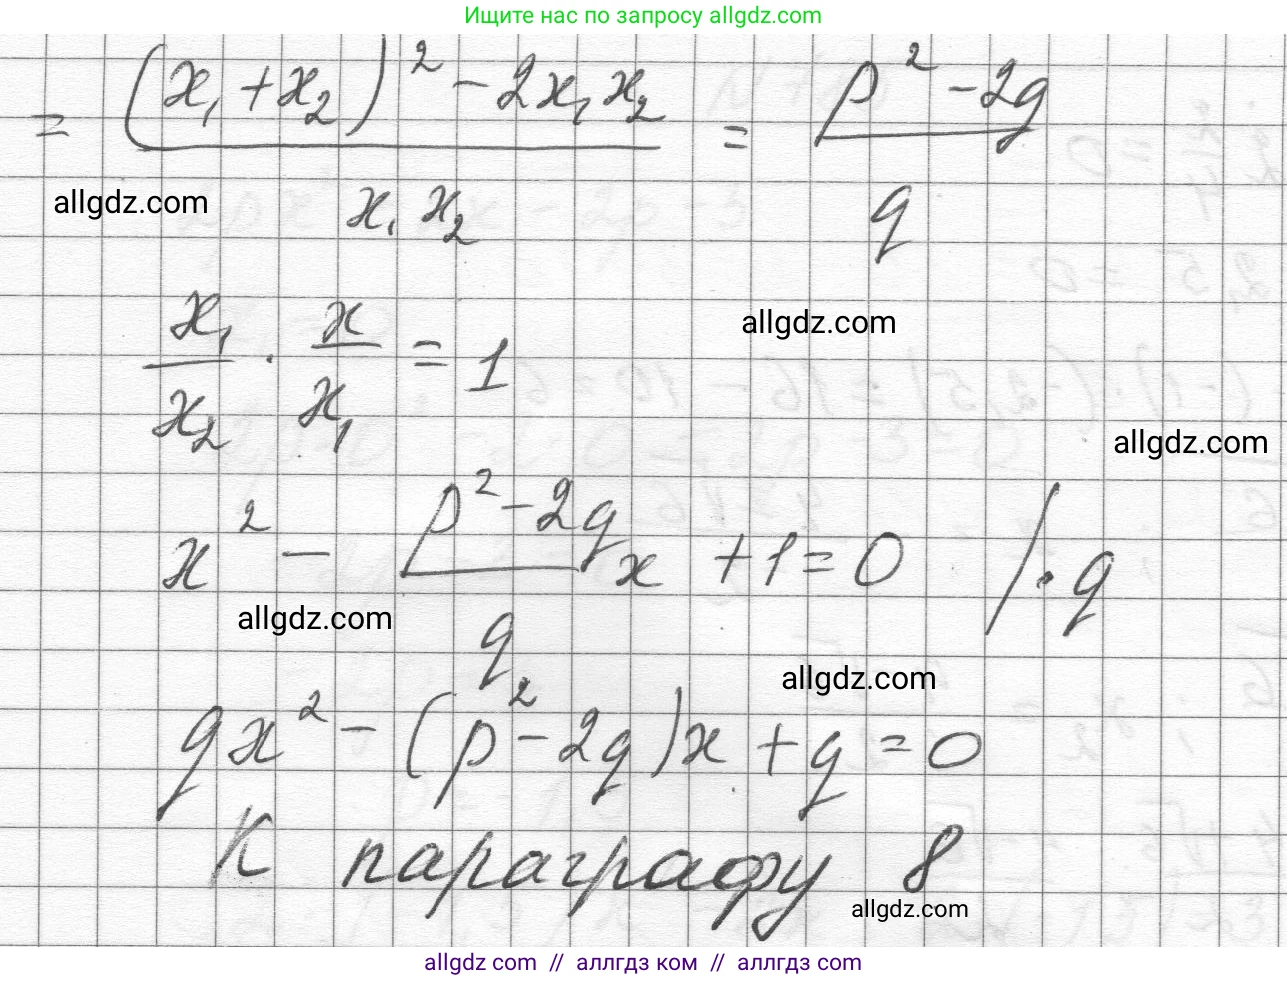 Ищите нас по запросу allgdz.com
= ((x₁ + x₂)² - 2x₁x₂) / (x₁x₂) = (p² - 2q) / q
allgdz.com
x₁/x₂ · x/x₁ = 1
allgdz.com
allgdz.com
x² - (p² - 2q)/q x + 1 = 0 /· q
allgdz.com
allgdz.com
qx² - (p² - 2q)x + q = 0
К параграфу 8
allgdz.com
allgdz com // аллгдз ком // allgdz com